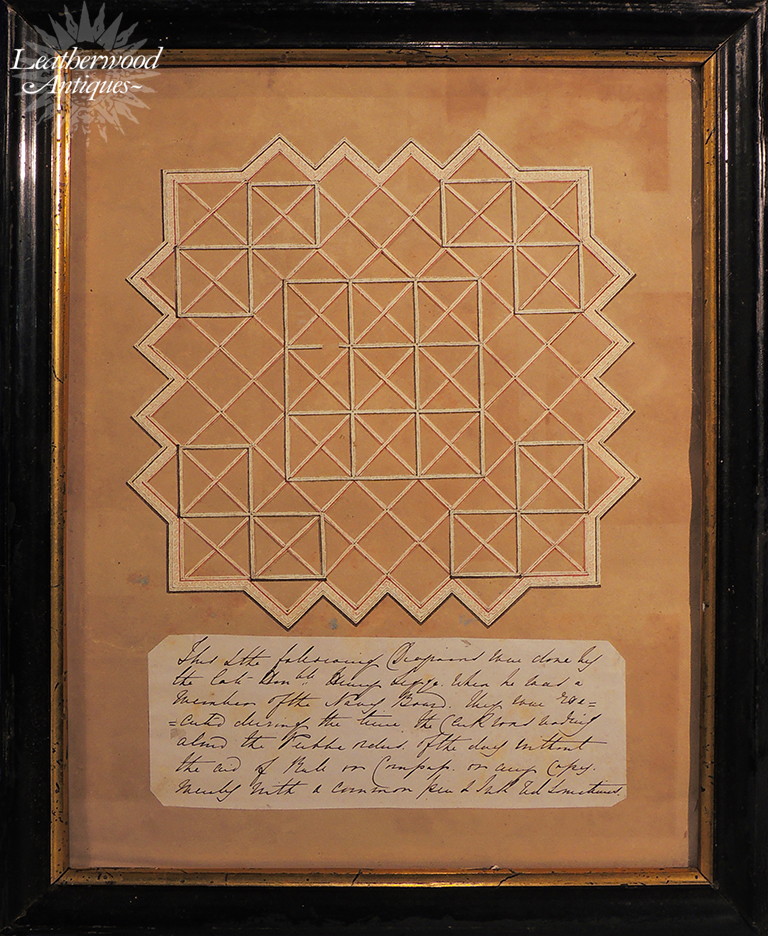 Leatherwood
Antiques~
This & the following Diagrams were done by
the late Honble Henry Legge. When he was a
Member of the Navy Board. They were Exe=
=cuted during the time the Clerk was reading
aloud the Public orders of the day without
the aid of Rule or Compass. or any Copy.
Merely with a common pen & Ink Red sometimes.